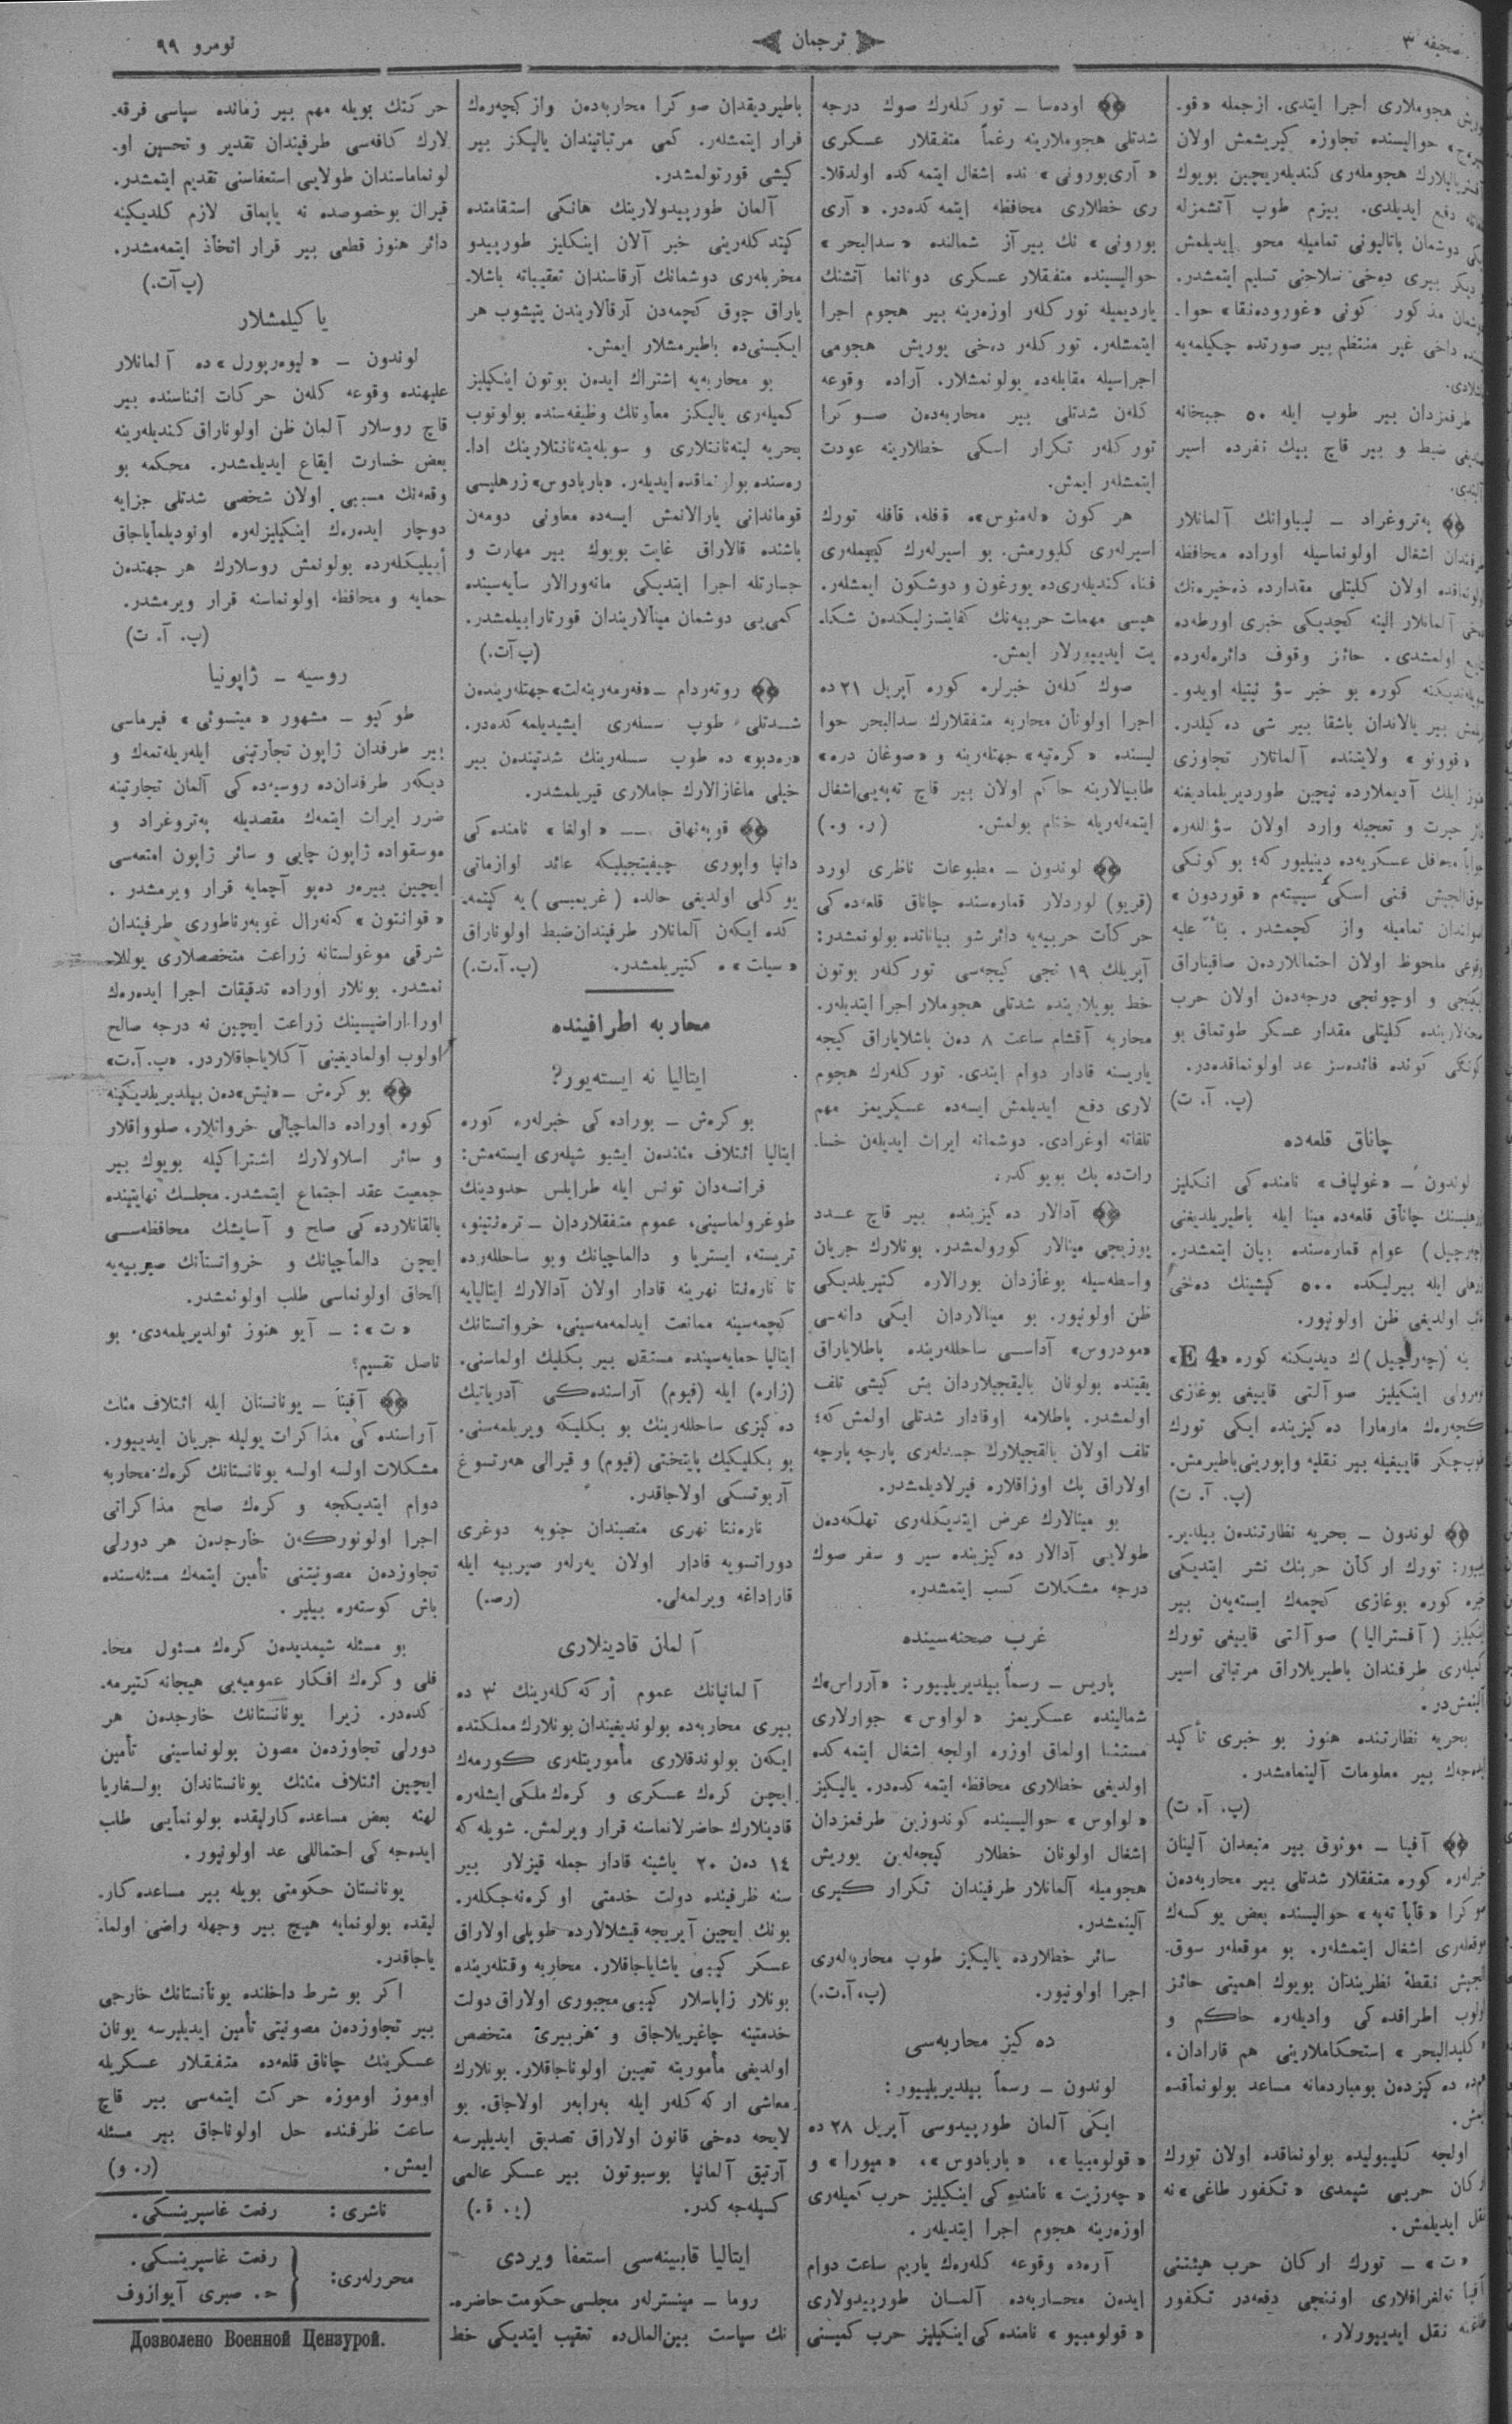 صحیفه ۳
ترجمان
نومرو ۹۹
هجوملاری اجرا ایتدی. ازجمله «قو-
حوالیسنده تجاوزه کیریشمش اولان
هجوملەری کندیلەریچین بویوك
دفع ایدیلدی. بیزم طوپ آتشمزله
دوشمان باتالیونی تمامیله محو ایدیلمش
دیکر بیری دەخی سلاحنی تسلیم ایتمشدر.
مذکور کونی «غورودەنقا» حوا-
داخی غیر منتظم بیر صورتده چکیلمەیه
طرفمزدان بیر طوپ ایله ۵۰ جبخانه
ضبط و بیر قاچ بیك نفرده اسیر
پەتروغراد ــ لیباوانك آلمانلار
اشغال اولونماسیله اوراده محافظه
اولان کلیتلی مقدارده ذخیرەنك
آلمانلار الینه کچدیکی خبری اورطەده
اولمشدی. حائز وقوف دائرەلەرده
کوره بو خبر سؤ نیتیله اویدو-
بیر یالاندان باشقا بیر شی دەکیلدر.
«قوونو» ولایتنده آلمانلار تجاوزی
ایلك آدیملارده نیچین طوردیریلمادیغنه
حیرت و تعجبله وارد اولان سؤاللەره
محافل عسکریەده دینیلیور که؛ بو کونکی
فنی اسکی سیستم «قوردون»
تمامیله واز کچمشدر. بناً علیه
ملحوظ اولان احتماللاردەن صاقیناراق
و اوچونجی درجەدەن اولان حرب
کلیتلی مقدار عسکر طوتماق بو
کونکی کونده فائدەسز عد اولونماقدەدر.
(پ. آ. ت)
چاناق قلعەده
لوندون ــ «غولیاف» نامنده کی انکلیز
چاناق قلعەده مینا ایله باطیریلدیغنی
(چەرچیل) عوام قمارەسنده بیان ایتمشدر.
ایله بیرلیکده ۵۰۰ کیشینك دەخی
اولدیغی ظن اولونیور.
ینه (چەرچیل)ك دیدیکنه کوره «E 4»
اینکیلیز صو آلتی قاییغی بوغازی
کچەرەك مارمارا دەکیزینده ایکی تورك
قاییغیله بیر نقلیه واپورینی باطیرمش.
(پ. آ. ت)
لوندون ــ بحریه نظارتندەن بیلدیر-
تورك ارکان حربنك نشر ایتدیکی
کوره بوغازی کچمەك ایستەیەن بیر
(آفسترالیا) صو آلتی قاییغی تورك
طرفندان باطیریلاراق مرتباتی اسیر
آلینمش در.
بحریه نظارتنده هنوز بو خبری تأکید
ایدەجەك بیر معلومات آلینمامشدر.
(پ. آ. ت)
آفینا ــ موثوق بیر منبعدان آلینان
کوره متفقلار شدتلی بیر محاربەدەن
«قابا تەپه» حوالیسنده بعض یوکسەك
اشغال ایتمشلەر. بو موقعلەر سوق-
نقطۀ نظریندان بویوك اهمیتی حائز
اولوب اطرافده کی وادیلەره حاکم و
«کلیدالبحر» استحکاملارینی هم قارادان،
دەکیزدەن بومباردمانه مساعد بولونماقده
اولجه کلیبولیده بولونماقده اولان تورك
حربی شیمدی «تکفور طاغی»نه
نقل ایدیلمش.
«ت» ــ تورك ارکان حرب هیئتنی
تلغرافلاری اوننجی دفعەدر تکفور
نقل ایدییورلار.
اودەسا ــ تورکلەرك صوك درجه
شدتلی هجوملارینه رغماً متفقلار عسکری
«آری بورونی»نده اشغال ایتمه کده اولدقلا-
ری خطلاری محافظه ایتمه کدەدر. «آری
بورونی»نك بیرآز شمالنده «سدالبحر»
حوالیسنده متفقلار عسکری دونانما آتشنك
یاردیمیله تورکلەر اوزەرینه بیر هجوم اجرا
ایتمشلەر. تورکلەر دەخی یوریش هجومی
اجراسیله مقابلەده بولونمشلار. آراده وقوعه
کلەن شدتلی بیر محاربەدەن صوکرا
تورکلەر تکرار اسکی خطلارینه عودت
ایتمشلەر ایمش.
هر کون «لەمنوس»ه قافله، قافله تورك
اسیرلەری کلیورمش. بو اسیرلەرك کییملەری
فنا، کندیلەری ده یورغون و دوشکون ایمشلەر.
هپسی مهمات حربیەنك کفایتسزلیکندەن شکا-
یت ایدییورلار ایمش.
صوك کلەن خبرلره کوره آپریل ۲۱ ده
اجرا اولونان محاربه متفقلارك سدالبحر حوا
لیسنده «کرەتیه» جهتلەرینه و «صوغان دره»
طابیالارینه حاکم اولان بیر قاچ تەپەیی اشغال
ایتمەلەریله ختام بولمش. (ر. و.)
لوندون ــ مطبوعات ناظری لورد
(قریو) لوردلار قمارەسنده چاناق قلعەده کی
حرکات حربیەیه دائر شو بیاناتده بولونمشدر:
آپریلك ۱۹ نجی کیجەسی تورکلەر بوتون
خط بویلارینده شدتلی هجوملار اجرا ایتدیلەر.
محاربه آقشام ساعت ۸ دەن باشلایاراق کیجه
یاریسنه قادار دوام ایتدی. تورکلەرك هجوم
لاری دفع ایدیلمش ایسەده عسکریمز مهم
تلفاته اوغرادی. دوشمانه ایراث ایدیلەن خسا-
راتده پك بویوکدر.
آدالار دەکیزینده بیر قاچ عدد
یوزیجی مینالار کورولمشدر. بونلارك جریان
واسطەسیله بوغازدان بورالاره کتیریلدیکی
ظن اولونیور. بو مینالاردان ایکی دانەسی
«مودروس» آداسی ساحللەرینده پاطلایاراق
یقینده بولونان بالیقجیلاردان بش کیشی تلف
اولمشدر. پاطلامه اوقادار شدتلی اولمش که؛
تلف اولان بالقجیلارك جسدلەری پارچه پارچه
اولاراق پك اوزاقلاره فیرلادیلمشدر.
بو مینالارك عرض ایتدیکلەری تهلکەدەن
طولایی آدالار دەکیزینده سیر و سفر صوك
درجه مشکلات کسب ایتمشدر.
غرب صحنەسینده
پاریس ــ رسماً بیلدیریلییور: «آرراس»ك
شمالینده عسکریمز «لواوس» جوارلاری
مستثنا اولماق اوزره اولجه اشغال ایتمه کده
اولدیغی خطلاری محافظه ایتمه کدەدر. یالیکیز
«لواوس» حوالیسنده کوندوزین طرفمزدان
اشغال اولونان خطلار کیجەلەین یوریش
هجومیله آلمانلار طرفیندان تکرار کیری
آلینمشدر.
سائر خطلارده یالیکیز طوپ محاربەلەری
اجرا اولونیور. (پ. آ. ت.)
دەکیز محاربەسی
لوندون ــ رسماً بیلدیریلییور:
ایکی آلمان طورپیدوسی آپریل ۲۸ ده
«قولومبیا»، «بارپادوس»، «میورا» و
«چەرزیت» نامنده کی اینکیلیز حرب کمیلەری
اوزەرینه هجوم اجرا ایتدیلەر.
آرەده وقوعه کلەرەك یاریم ساعت دوام
ایدەن محاربەده آلمان طورپیدولاری
«قولومبیو» نامنده کی اینکیلیز حرب کمیسنی
باطیردیقدان صوکرا محاربەدەن واز کچەرەك
فرار ایتمشلەر. کمی مرتباتیندان یالیکز بیر
کیشی قورتولمشدر.
آلمان طورپیدولارینك هانکی استقامتده
کیتدکلەرینی خبر آلان اینکلیز طورپیدو
مخربلەری دوشمانك آرقاسندان تعقیباته باشلا-
یاراق چوق کچمەدن آرقالاریندن یتیشوب هر
ایکیسنی ده باطیرمشلار ایمش.
بو محاربەیه اشتراك ایدەن بوتون اینکیلیز
کمیلەری یالیکز معاونلك وظیفەسنده بولونوب
بحریه لیتەنانتلاری و سوبلەیتەنانتلارینك ادا-
رەسنده بولونماقده ایدیلەر. «بارپادوس» زرهلیسی
قوماندانی یارالانمش ایسەده معاونی دومەن
باشنده قالاراق غایت بویوك بیر مهارت و
جسارتله اجرا ایتدیکی مانەورالار سایەسینده
کمی یی دوشمان مینالاریندان قورتارابیلمشدر.
(پ آت.)
روتەردام ــ «فەرمەرینەلت» جهتلەریندەن
شدتلی طوپ سسلەری ایشیدیلمه کدەدر.
«رەدیو» ده طوپ سسلەرینك شدتیندەن بیر
خیلی ماغازالارك جاملاری قیریلمشدر.
قوپەنهاق ــ «اولغا» نامنده کی
دانیا واپوری چیفیتجیلیکه عائد لوازماتی
یوکلی اولدیغی حالده (غریمیسی)یه کیتمه-
کده ایکەن آلمانلار طرفیندان ضبط اولوناراق
«سیات»ه کتیریلمشدر. (پ. آ. ت.)
محاربه اطرافینده
ایتالیا نه ایستەیور؟
بوکرەش ــ بوراده کی خبرلەره کوره
ایتالیا ائتلاف مثلثدەن ایشبو شیلەری ایستەمش:
فرانسەدان تونس ایله طرابلس حدودینك
طوغرولماسینی، عموم متفقلاردان ــ ترەنتینو،
تریسته، ایستریا و دالماچیانك وبو ساحللەرده
تا نارەنتا نهرینه قادار اولان آدالارك ایتالیایه
کیچمەسینه ممانعت ایدلمەمەسینی، خرواتستانك
ایتالیا حمایەسینده مستقل بیر بکلیك اولماسنی.
(زاره) ایله (فیوم) آراسنده کی آدریاتیك
دەکیزی ساحللەرینك بو بکلیکه ویریلمەسنی.
بو بکلیکیك پایتختی (فیوم) و قیرالی هەرتسوغ
آربوتسکی اولاجاقدر.
نارەنتا نهری منصبندان جنوبه دوغری
دوراتسویه قادار اولان یەرلەر صیربیه ایله
قاراداغه ویرلمەلی. (رم.)
آلمان قادینلاری
آلمانیانك عموم ارکەکلەرینك ۳ ده
بیری محاربەده بولوندیغیندان بونلارك مملکتده
ایکەن بولوندقلاری مأموریتلەری کورمەك
ایچین کرەك عسکری و کرەك ملکی ایشلەره
قادینلارك حاضرلانماسنه قرار ویرلمش. شویله که
۱٤ دەن ۲۰ یاشینه قادار جمله قیزلار بیر
سنه ظرفینده دولت خدمتی اوکرەنەجکلەر.
بونك ایچین آیریجه قیشلالارده طوپلی اولاراق
عسکر کیبی یاشایاجاقلار. محاربه وقتلەرینده
بونلار زاپاسلار کیبی مجبوری اولاراق دولت
خدمتینه چاغیریلاجاق و هربیری متخصص
اولدیغی مأموریته تعیین اولوناجاقلار. بونلارك
معاشی ارکەکلەر ایله بەرابەر اولاجاق. بو
لایحه دەخی قانون اولاراق تصدیق ایدیلیرسه
آرتیق آلمانیا بوسبوتون بیر عسکر عالمی
کسیلەجەکدر. (ی. ق.)
ایتالیا قابینەسی استعفا ویردی
روما ــ مینسترلەر مجلسی حکومت حاضره-
نك سیاست بین‌المللده تعقیب ایتدیکی خط
حرکتك بویله مهم بیر زمانده سیاسی فرقه-
لارك کافەسی طرفیندان تقدیر و تحسین او-
لونماماسندان طولایی استعفاسنی تقدیم ایتمشدر.
قیرال بوخصوصده نه یاپماق لازم کلدیکینه
دائر هنوز قطعی بیر قرار اتخاذ ایتمەمشدر.
(پ آت.)
یاکیلمشلار
لوندون ــ «لیوەرپورل»ده آلمانلار
علیهنده وقوعه کلەن حرکات اثناسنده بیر
قاچ روسلار آلمان ظن اولوناراق کندیلەرینه
بعض خسارت ایقاع ایدیلمشدر. محکمه بو
وقعەنك مسببی اولان شخصی شدتلی جزایه
دوچار ایدەرەك اینکیلیزلەره اونودیلمایاجاق
أییلیکلەرده بولونمش روسلارك هر جهتدەن
حمایه و محافظه اولونماسنه قرار ویرمشدر.
(پ. آ. ت)
روسیه ــ ژاپونیا
طوکیو ــ مشهور «میتسوئی» فیرماسی
بیر طرفدان ژاپون تجارتینی ایلەریلەتمەك و
دیکەر طرفدان ده روسیەده کی آلمان تجارتینه
ضرر ایراث ایتمەك مقصدیله پەتروغراد و
موسقواده ژاپون چایی و سائر ژاپون امتعەسی
ایچین بیرەر دەپو آچمایه قرار ویرمشدر.
«قوانتون» کەنەرال غوبەرناطوری طرفیندان
شرقی موغولستانه زراعت متخصصلاری یوللا-
نمشدر. بونلار اوراده تدقیقات اجرا ایدەرەك
اورا اراضیسینك زراعت ایچین نه درجه صالح
اولوب اولمادیغینی آکلایاجاقلاردر. «پ. آ. ت»
بوکرەش ــ «نیش»دەن بیلدیریلدیکینه
کوره اوراده دالماچیالی خرواتلار، صلوواقلار
و سائر اسلاولارك اشتراکیله بویوك بیر
جمعیت عقد اجتماع ایتمشدر. مجلسك نهایتینده
بالقانلارده کی صلح و آسایشك محافظەسی
ایچن دالماچیانك و خرواتستانك صیربیەیه
إلحاق اولونماسی طلب اولونمشدر.
«ت»: ــ آیو هنوز ئولدیریلمەدی. بو
ناصل تقسیم؟
آفینا ــ یونانستان ایله ائتلاف مثلث
آراسنده کی مذاکرات یولیله جریان ایدییور.
مشکلات اولسه اولسه یونانستانك کرەك محاربه
دوام ایتدیکجه و کرەك صلح مذاکراتی
اجرا اولونورکەن خارجدەن هر دورلی
تجاوزدەن مصونیتنی تأمین ایتمەك مسئلەسنده
باش کوستەره بیلیر.
بو مسئله شیمدیدەن کرەك مسئول محا-
فلی و کرەك افکار عمومیەیی هیجانه کتیرمه-
کدەدر. زیرا یونانستانك خارجدەن هر
دورلی تجاوزدەن مصون بولونماسینی تأمین
ایچین ائتلاف مثلثك یونانستاندان بولغاریا
لهنه بعض مساعدەکارلیقده بولونمایی طلب
ایدەجەکی احتماللی عد اولونیور.
یونانستان حکومتی بویله بیر مساعدەکار-
لیقده بولونمایه هیچ بیر وجهله راضی اولما-
یاجاقدر.
اکر بو شرط داخلنده یونانستانك خارجی
بیر تجاوزدەن مصونیتی تأمین ایدیلیرسه یونان
عسکرینك چاناق قلعەده متفقلار عسکریله
اوموز اوموزه حرکت ایتمەسی بیر قاچ
ساعت ظرفنده حل اولوناجاق بیر مسئله
ایمش. (ر. و)
ناشری: رفعت غاسپرینسکی.
محررلەری: رفعت غاسپرینسکی.
ح. صبری آیوازوف
Дозволено Военной Цензурой.